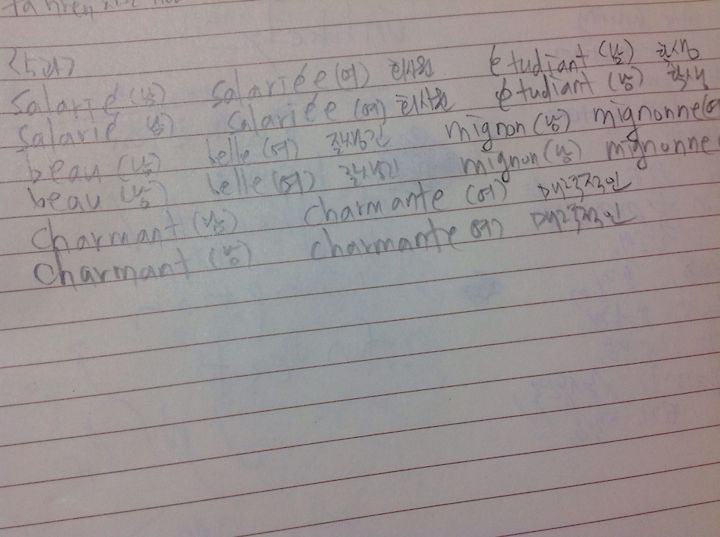 <5과>
Salarié (남) Salariée (여) 회사원 étudiant (남) 학생
Salarié 남 Salariée (여) 회사원 étudiant (남) 학생
beau (남) belle (여) 잘생긴 mignon (남) mignonne (여
beau (남) belle (여) 잘생긴 mignon (남) mignonne
Charmant (남) Charmante (여) 매력적인
Charmant (남) charmante 여) 매력적인